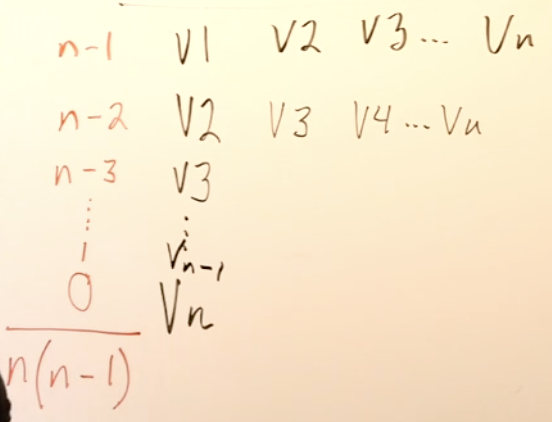 n-1 V1 V2 V3... Vn
n-2 V2 V3 V4...Vn
n-3 V3
⋮ ⋮
1 Vn-1
0 Vn
n(n-1)